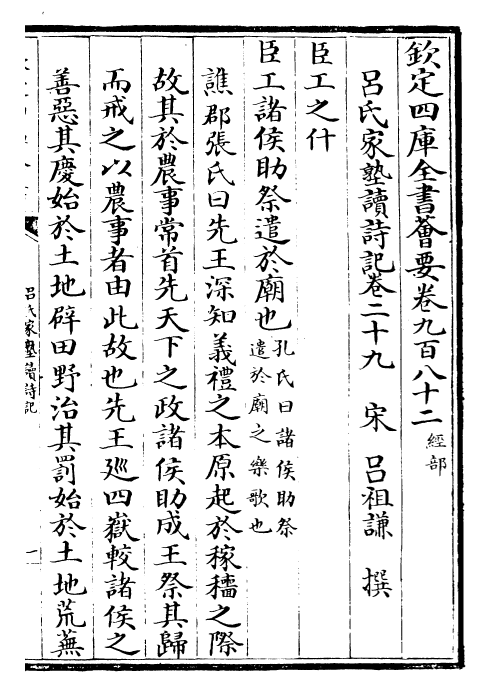 欽定四庫全書薈要卷九百八十二經部
呂氏家塾讀詩記卷二十九 宋 呂祖謙 撰
臣工之什
臣工諸侯助祭遣於廟也孔氏曰諸侯助祭
遣於廟之樂歌也
譙郡張氏曰先王深知義禮之本原起於稼穡之際
故其於農事常首先天下之政諸侯助成王祭其歸
而戒之以農事者由此故也先王廵四嶽較諸侯之
善惡其慶始於土地辟田野治其罰始於土地荒蕪
呂氏家塾讀詩記
一